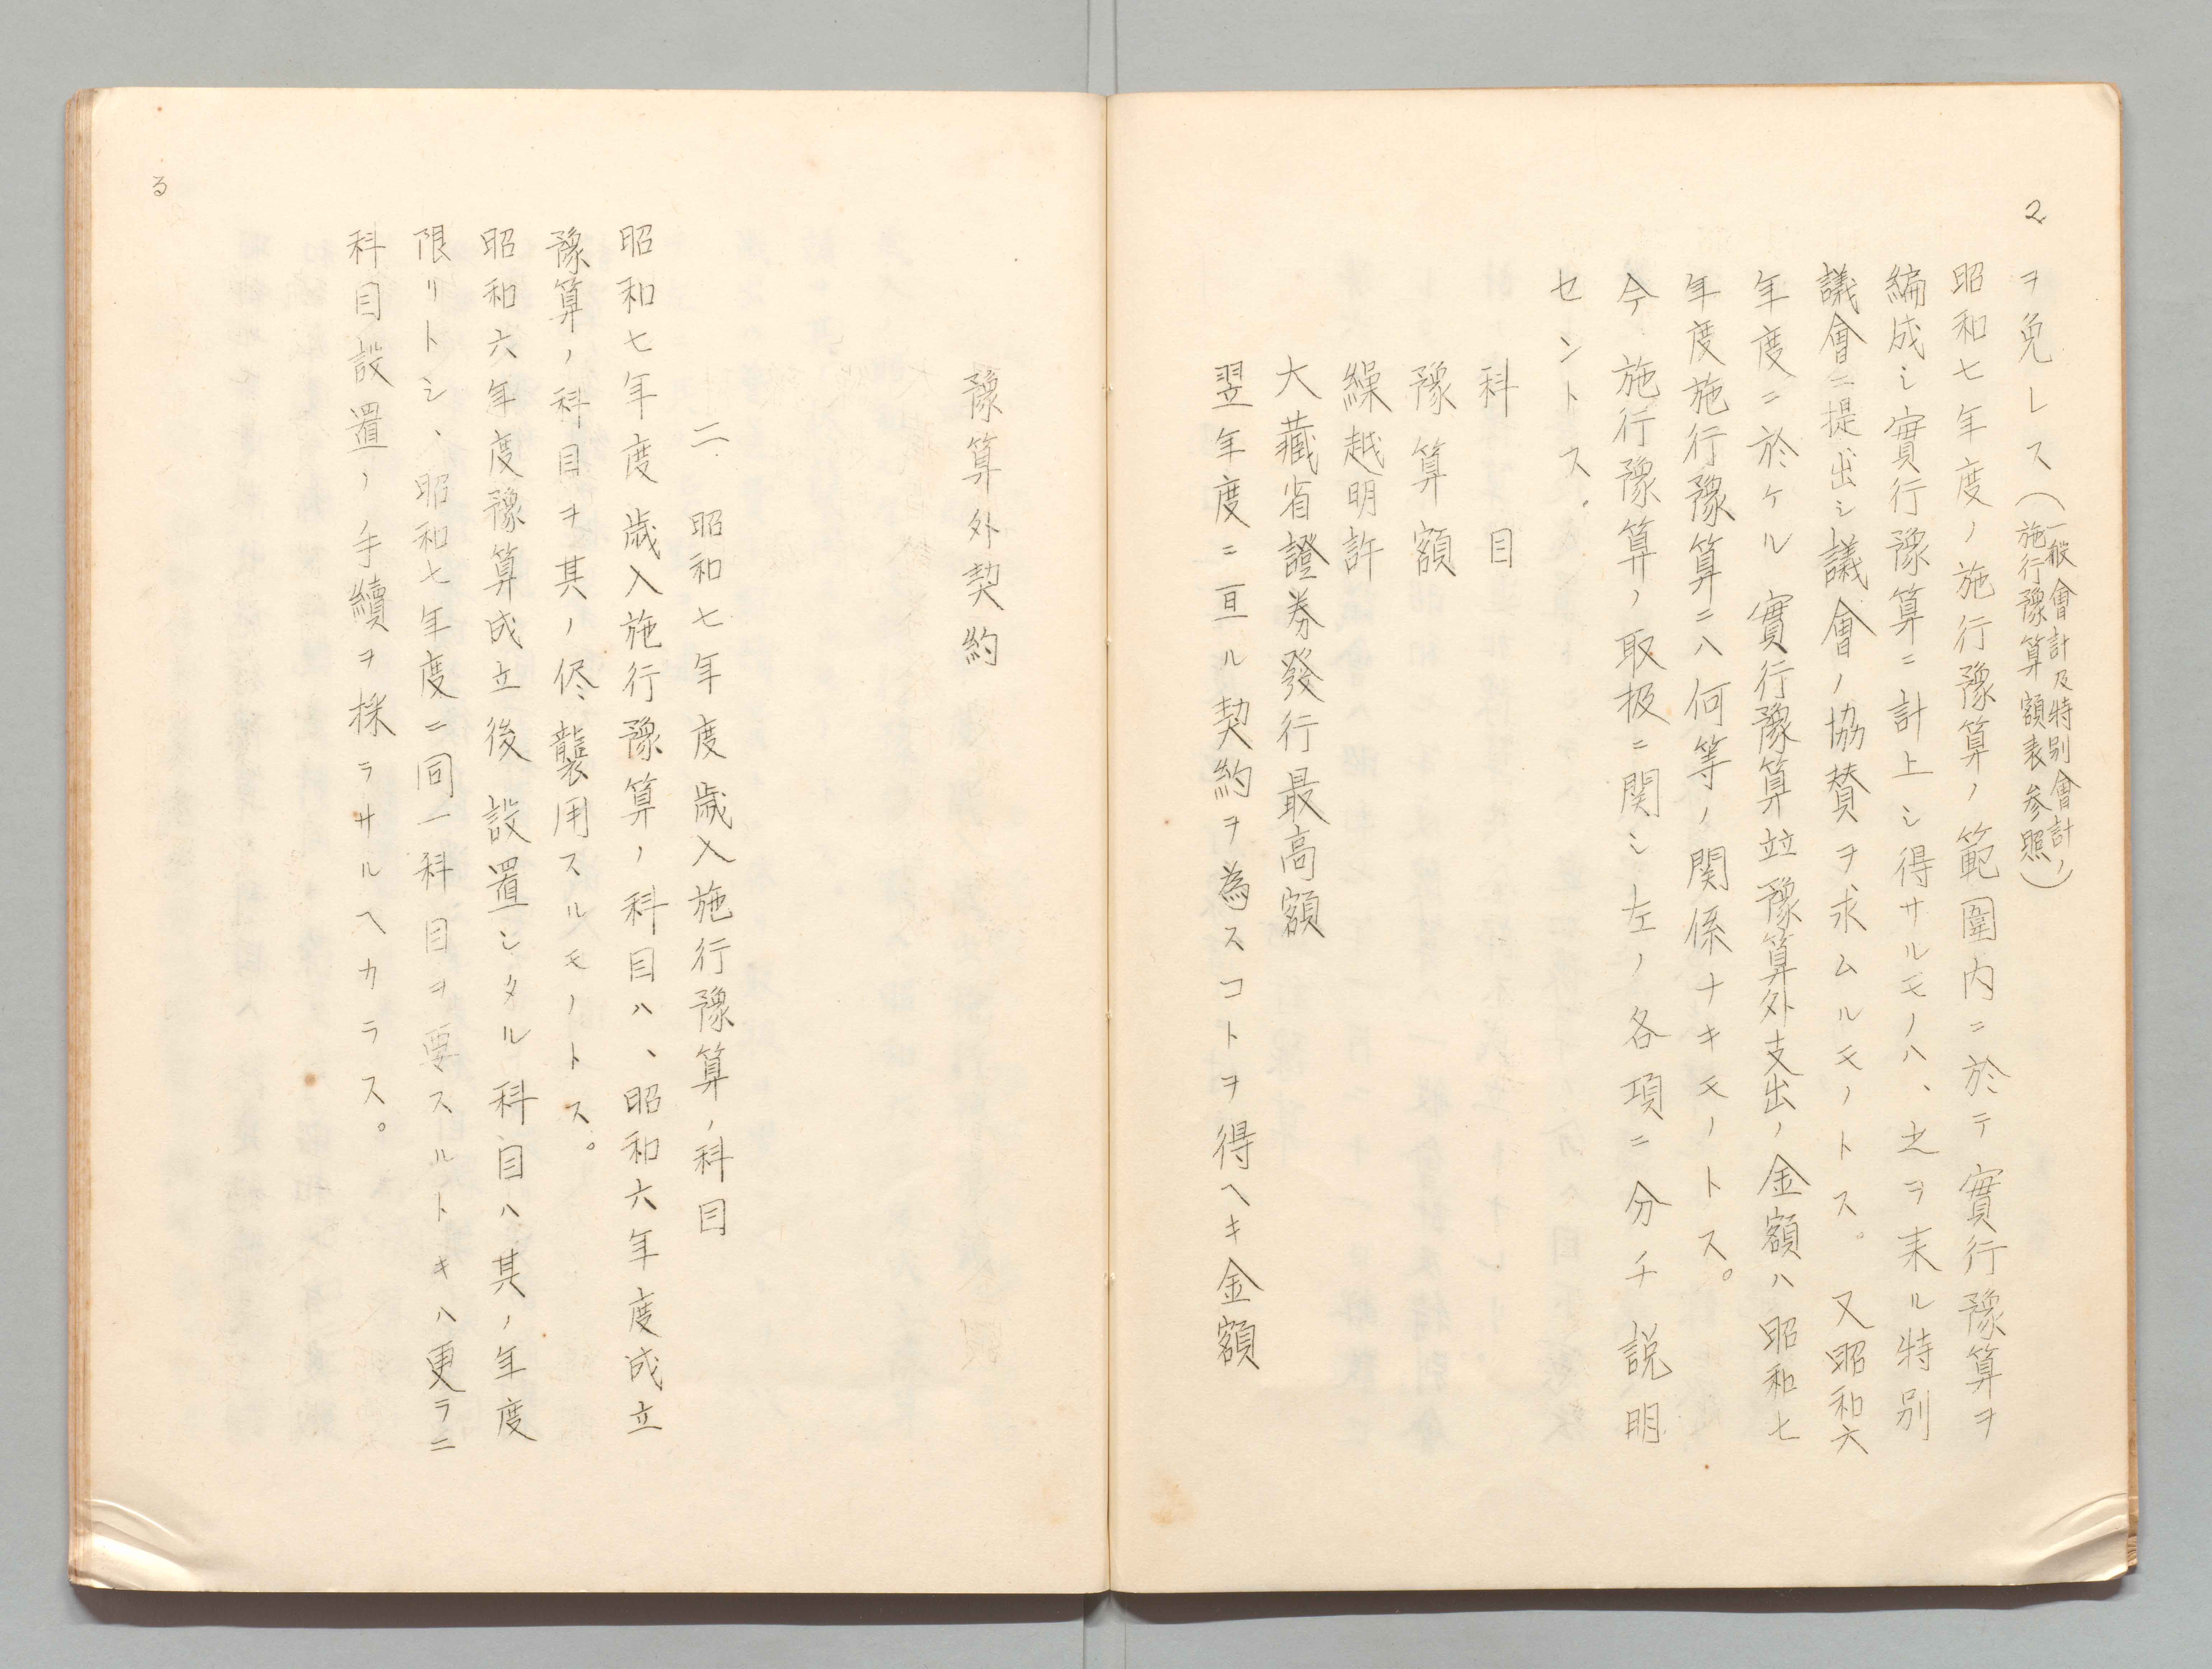 2
ヲ免レス（一般會計及特別會計ノ
施行豫算額表參照）
昭和七年度ノ施行豫算ノ範圍内ニ於テ實行豫算ヲ
編成シ實行豫算ニ計上シ得サルモノハ、之ヲ来ル特別
議會ニ提出シ議會ノ協賛ヲ求ムルモノトス。又昭和六
年度ニ於ケル實行豫算竝豫算外支出ノ金額ハ昭和七
年度施行豫算ニハ何等ノ関係ナキモノトス。
今施行豫算ノ取扱ニ関シ左ノ各項ニ分チ説明
セントス。
科目
豫算額
繰越明許
大藏省證券發行最高額
翌年度ニ亘ル契約ヲ為スコトヲ得ヘキ金額
豫算外契約
二 昭和七年度歳入施行豫算ノ科目
昭和七年度歳入施行豫算ノ科目ハ、昭和六年度成立
豫算ノ科目ヲ其ノ儘襲用スルモノトス。
昭和六年度豫算成立後設置シタル科目ハ其ノ年度
限リトシ、昭和七年度ニ同一科目ヲ要スルトキハ更ラニ
科目設置ノ手續ヲ採ラサルヘカラス。